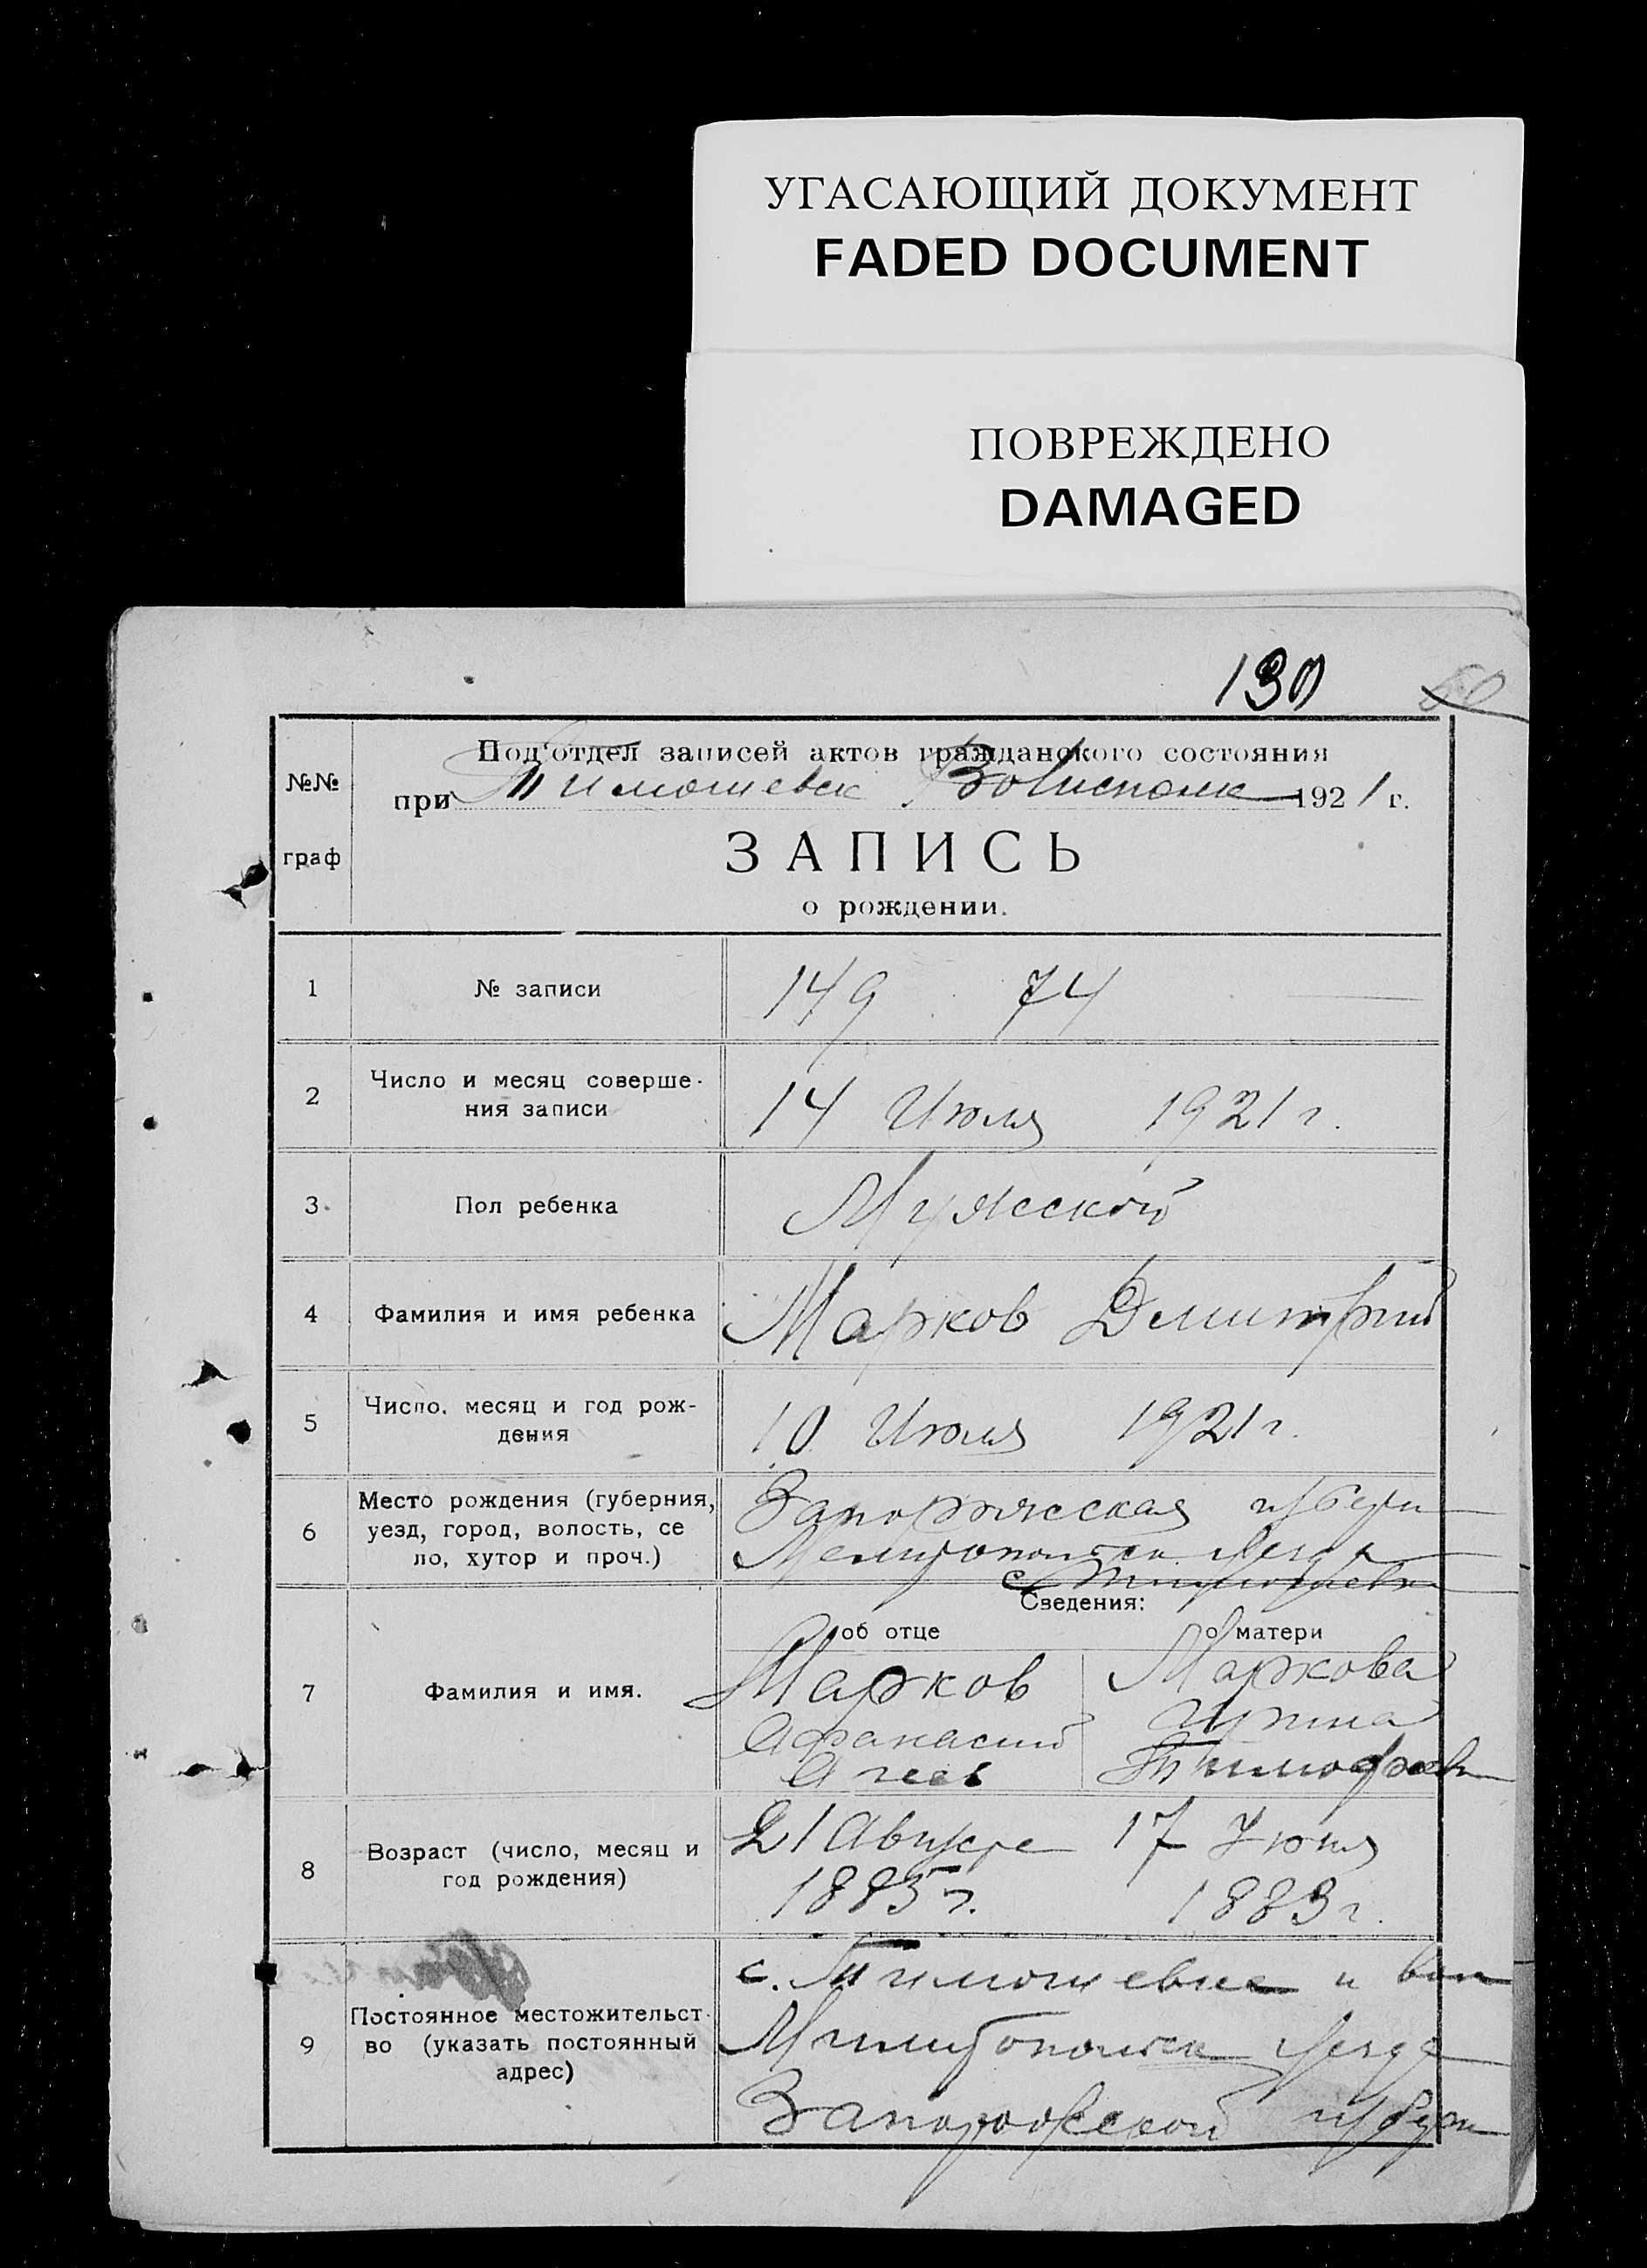 УГАСАЮЩИЙ ДОКУМЕНТ
FADED DOCUMENT
ПОВРЕЖДЕНО
DAMAGED
130
60
Под'отдел записей актов гражданского состояния
№№
при Тимошевск Волисполк 1921 г.
граф
ЗАПИСЬ
о рождении.
1 № записи 149 74
2 Число и месяц соверше-
ния записи 14 Июля 1921 г.
3 Пол ребенка Мужской
4 Фамилия и имя ребенка Марков Дмитрий
5 Число, месяц и год рож-
дения 10 Июля 1921 г.
6 Место рождения (губерния,
уезд, город, волость, се
ло, хутор и проч.)
Запорожская губерн
Мелитопольск уезда
с Тимошевк
Сведения:
об отце о матери
7 Фамилия и имя.
Марков Маркова
Афанасий
Тимофеев
8 Возраст (число, месяц и
год рождения)
21 Августа 17 Июня
1885 г. 1883 г.
9 Постоянное местожительст-
во (указать постоянный
адрес)
с. Тимошевка и вол
Мелитопольск уезда
Запорожской губерн